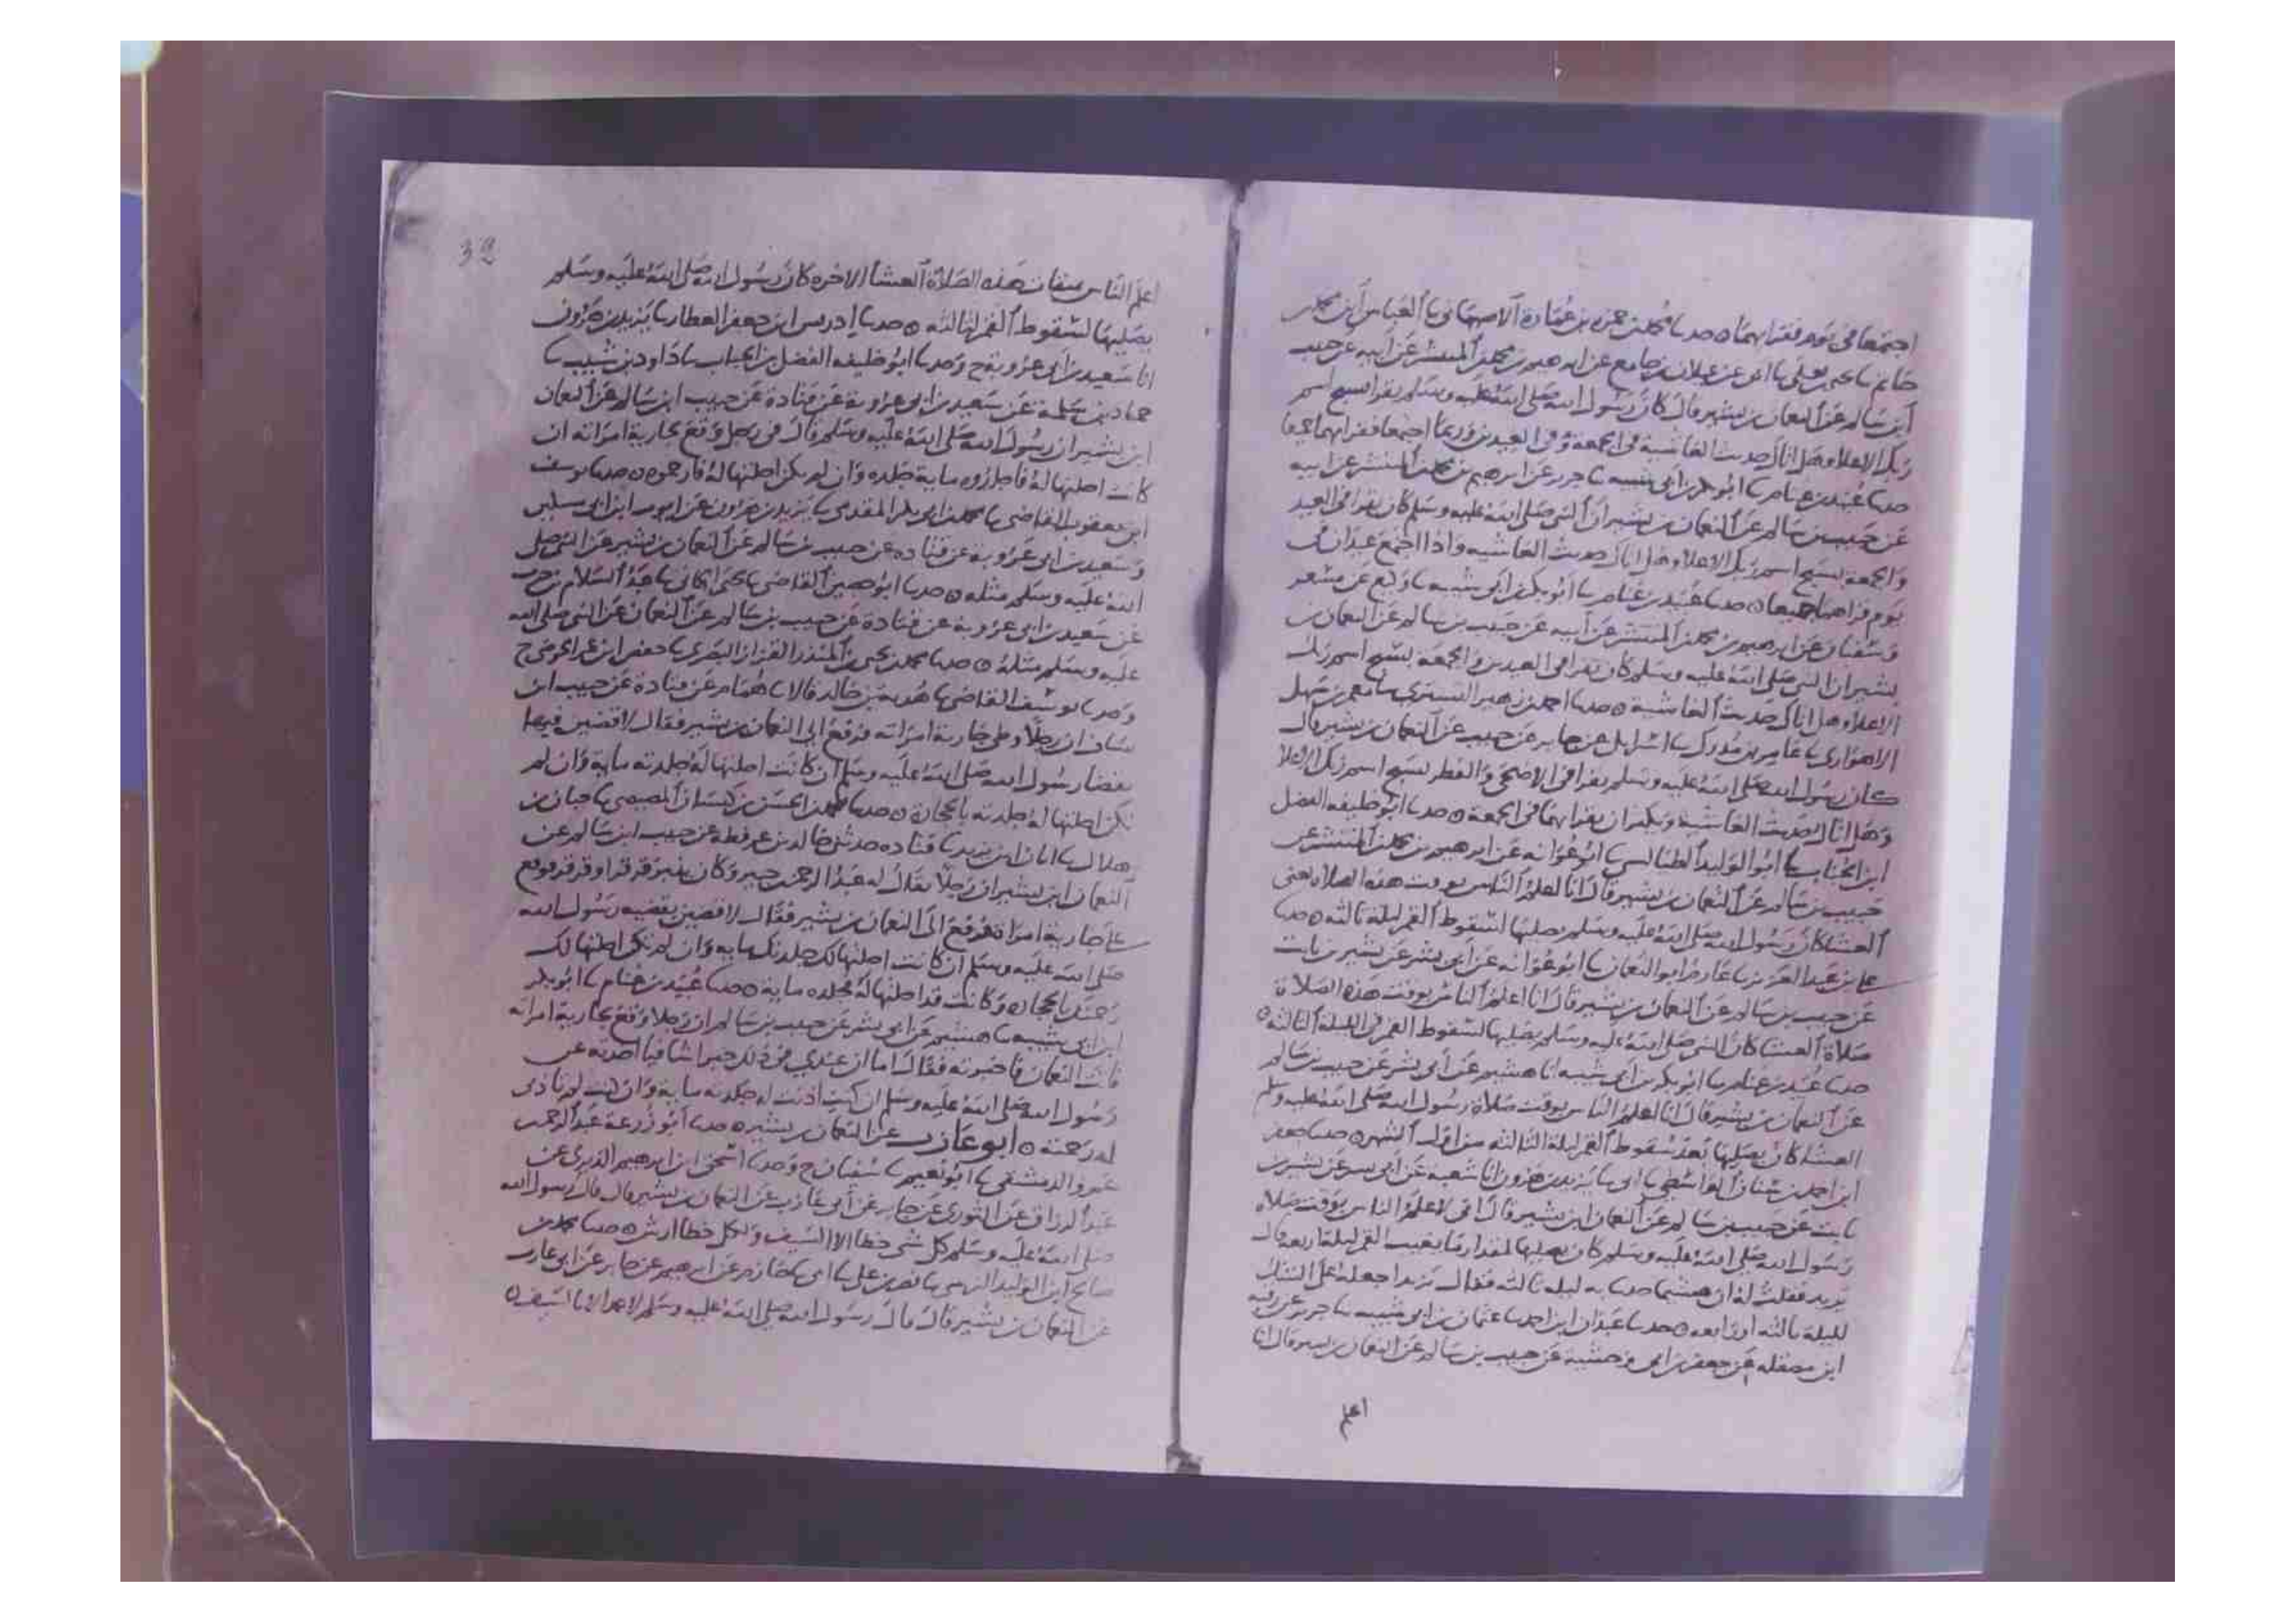 اجتمعا في يوم فقرا بهما ٥ حدثنا محمد بن حمزه بن عمارة الاصبهاني نا العباس بن محمد
حاتم نا يعلى نا ابي عن غيلان بن جامع عن ابرهيم بن محمد المنتشر عن ابيه عن حبيب
ابن سالم عن النعمان بن بشير قال كان رسول الله صلى الله عليه وسلم يقرا بسبح اسم
ربك الاعلا وهل اتاك حديث الغاشية في الجمعة وفي العيدين وربما اجتمعا فقرا بهما جميعا
حدثنا عبيد بن غنام نا ابو بكر بن ابي شيبه نا جرير عن ابرهيم بن محمد المنتشر عن ابيه
عن حبيب بن سالم عن النعمان بن بشير ان النبي صلى الله عليه وسلم كان يقرا في العيد
والجمعة بسبح اسم ربك الاعلا وهل اتاك حديث الغاشيه واذا اجتمع عيدان في
يوم قراهما جميعا ٥ حدثنا عبيد بن غنام نا ابو بكر بن ابي شيبه نا وكيع عن مسعر
وسفيان عن ابرهيم بن محمد المنتشر عن ابيه عن حبيب بن سالم عن النعمان بن
بشير ان النبي صلى الله عليه وسلم كان يقرا في العيدين والجمعة بسبح اسم ربك
الاعلا وهل اتاك حديث الغاشية ٥ حدثنا احمد بن زهير التستري نا معمر بن سهل
الاهوازي نا عامر بن مدرك نا اسرايل عن جابر عن حبيب عن النعمان بن بشير قال
كان رسول الله صلى الله عليه وسلم يقرا في الاضحى والفطر بسبح اسم ربك الاعلا
وهل اتاك حديث الغاشية ان يقرا بهما في الجمعة ٥ حدثنا ابو خليفه الفضل
ابن الحباب نا ابو الوليد الطيالسي نا ابو عوانه عن ابرهيم بن محمد المنتشر عن
حبيب بن سالم عن النعمان بن بشير قال انا اعلم الناس بوقت هذه الصلاه يعني
العشا كان رسول الله صلى الله عليه وسلم يصليها لسقوط القمر ليلة ثالثه ٥ حدثنا
علي بن عبد العزيز نا عارم ابو النعمان نا ابو عوانه عن ابي بشر عن بشير بن ثابت
عن حبيب بن سالم عن النعمان بن بشير قال انا اعلم الناس بوقت هذه الصلاة
صلاة العشا كان النبي صلى الله عليه وسلم يصليها لسقوط القمر في الليلة الثالثه ٥
حدثنا عبيد بن غنام نا ابو بكر بن ابي شيبه انا هشيم عن ابي بشر عن حبيب بن سالم
عن النعمان بن بشير قال انا اعلم الناس بوقت صلاة رسول الله صلى الله عليه وسلم
العشا كان يصليها بعد سقوط القمر ليلة الثالثه من اول الشهر ٥ حدثنا جعفر
ابن احمد بن سنان الواسطي نا ابي نا يزيد بن هرون انا شعبه عن ابي بشر عن بشير بن
ثابت عن حبيب بن سالم عن النعمان ابن بشير قال اني لاعلم الناس بوقت صلاه
رسول الله صلى الله عليه وسلم كان يصليها لمقدار ما يغيب القمر ليلة رابعه قال
يزيد فقلت له ان هشيما حدثنا به ليله ثالثه فقال يزيد اجعله على الشك
لليلة ثالثه او رابعه ٥ حدثنا عبدان ابن احمد نا عثمان بن ابي شيبه نا جرير عن رقبه
ابن مصقله عن جعفر بن ابي وحشية عن حبيب بن سالم عن النعمان بن بشير قال انا
اعلم
32
اعلم الناس بميقات هذه الصلاة العشا الاخره كان رسول الله صلى الله عليه وسلم
يصليها لسقوط القمر لثالثه ٥ حدثنا ادريس ابن جعفر العطار نا يزيد بن هرون
انا سعيد بن ابي عروبة ح وحدثنا ابو خليفه الفضل بن الحباب نا داود بن شبيب نا
حماد بن سلمة عن سعيد بن ابي عروبة عن قتادة عن حبيب ابن سالم عن النعمان
ابن بشير ان رسول الله صلى الله عليه وسلم قال في رجل وقع بجارية امراته ان
كانت احلتها له فاجلدوه ماية جلده وان لم يكن احلتها له فارجموه ٥ حدثنا يوسف
ابن يعقوب القاضي نا محمد بن ابي بكر المقدمي نا يزيد بن هرون عن ايوب ابن ابي مسكين
وسعيد بن ابي عروبة عن قتاده عن حبيب بن سالم عن النعمان بن بشير عن النبي صلى
الله عليه وسلم مثله ٥ حدثنا ابو حصين القاضي نا يحيى الحماني نا عبد السلام بن حرب
عن سعيد بن ابي عروبة عن قتادة عن حبيب بن سالم عن النعمان عن النبي صلى الله
عليه وسلم مثله ٥ حدثنا محمد بن يحيى بن المنذر القزاز البصري نا حفص ابن عمر الحوضي ح
وحدثنا يوسف القاضي نا هدبة بن خالد قالا نا همام عن قتادة عن حبيب ابن
يساف ان رجلا وطى جارية امراته فرفع الى النعمان بن بشير فقال لاقضين فيها
بقضا رسول الله صلى الله عليه وسلم ان كانت احلتها له جلدته ماية وان لم
تكن احلتها له جلدته بالحجارة ٥ حدثنا محمد بن الحسن بن كيسان المصيصي نا حبان بن
هلال نا ابان ابن يزيد نا قتاده حدثني خالد بن عرفطه عن حبيب ابن سالم عن
النعمان ابن بشير ان رجلا يقال له عبد الرحمن بن حنين وكان ينبز قرقرا وقرقر فوقع
على جارية امراته فرفع الى النعمان بن بشير فقال لاقضين بقضيه رسول الله
صلى الله عليه وسلم ان كانت احلتها لك جلدتك مايه وان لم تكن احلتها لك
رجمتك بالحجاره وكانت قد احلتها له فجلده ماية ٥ حدثنا عبيد بن غنام نا ابو بكر
ابن ابي شيبه نا هشيم عن ابي بشر عن حبيب بن سالم ان رجلا وقع بجارية امراته
فاتت النعمان فاخبرته فقال اما ان عندي في ذلك خبرا شافيا احدثه عن
رسول الله صلى الله عليه وسلم ان كنت اذنت له جلدته ماية وان كنت لم تاذني
له رجمته ٥ ابو عازب عن النعمان بن بشير ٥ حدثنا ابو زرعة عبد الرحمن بن
عمرو الدمشقي نا ابو نعيم نا سفيان ح وحدثنا اسحق ابن ابرهيم الدبري عن
عبد الرزاق عن الثوري عن جابر عن ابي عازب عن النعمان بن بشير قال قال رسول الله
صلى الله عليه وسلم كل شي خطا الا السيف ولكل خطا ارش ٥ حدثنا محمد بن
صالح ابن الوليد النرسي نا نصر بن علي نا ابي نا خازم عن ابرهيم عن جابر عن ابي عازب
عن النعمان بن بشير قال قال رسول الله صلى الله عليه وسلم لا عمد الا بالسيف ٥